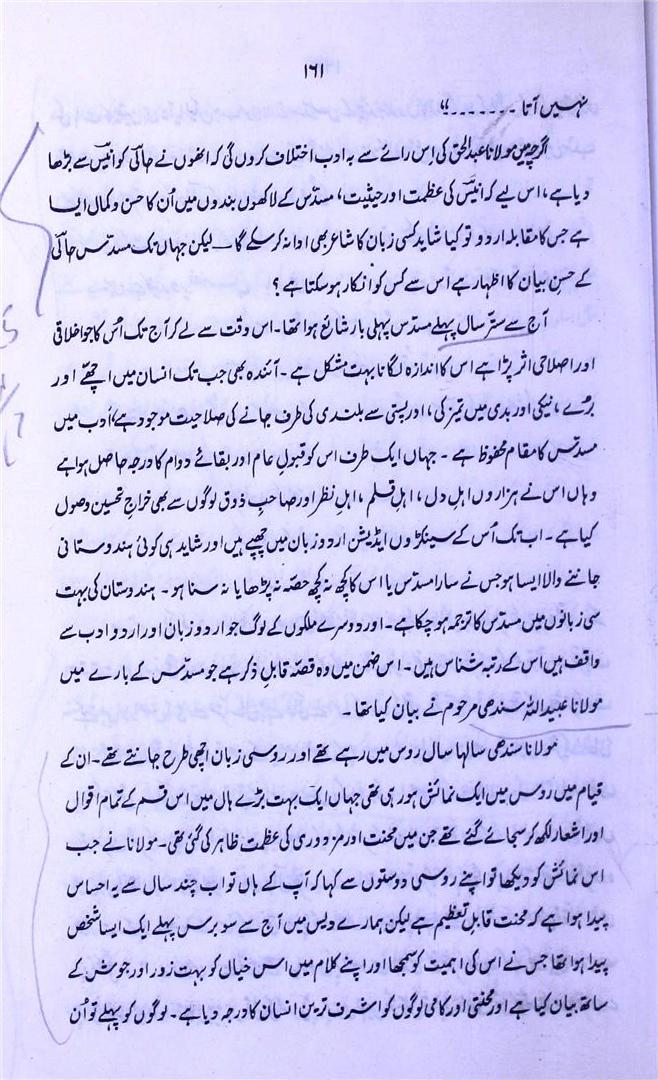 ۱۶۱
نہیں آتا ۔۔۔۔۔۔۔“
اگرچہ میں مولانا عبدالحق کی اِس رائے سے بہ ادب اختلاف کروں گی کہ انھوں نے حالی کو انیس سے بڑھا
دیا ہے، اس لیے کہ انیس کی عظمت اور حیثیت، مسدس کے لاکھوں بندوں میں اُن کا حسن و کمال ایسا
ہے جس کا مقابلہ اردو تو کیا شاید کسی زبان کا شاعر بھی ادا نہ کر سکے گا — لیکن جہاں تک مسدسِ حالی
کے حسنِ بیان کا اظہار ہے اُس سے کس کو انکار ہو سکتا ہے؟
آج سے ستّر سال پہلے مسدس پہلی بار شائع ہوا تھا۔ اس وقت سے لے کر آج تک اُس کا جو اخلاقی
اور اصلاحی اثر پڑا ہے اس کا اندازہ لگانا بہت مشکل ہے۔ آئندہ بھی جب تک انسان میں اچھے اور
بُرے، نیکی اور بدی میں تمیز کی، اور پستی سے بلندی کی طرف جانے کی صلاحیت موجود ہے، اُدب میں
مسدس کا مقام محفوظ ہے۔ جہاں ایک طرف اس کو قبولِ عام اور بقائے دوام کا درجہ حاصل ہوا ہے
وہاں اس نے ہزاروں اہلِ دل، اہلِ قلم، اہلِ نظر اور صاحبِ ذوق لوگوں سے بھی خراجِ تحسین وصول
کیا ہے۔ اب تک اُس کے سینکڑوں ایڈیشن اردو زبان میں چھپے ہیں اور شاید ہی کوئی ہندوستانی
جاننے والا ایسا ہو جس نے سارا مسدس یا اس کا کچھ نہ کچھ حصّہ نہ پڑھا یا نہ سنا ہو۔ ہندوستان کی بہت
سی زبانوں میں مسدس کا ترجمہ ہو چکا ہے۔ اور دوسرے ملکوں کے لوگ جو اردو زبان اور اردو ادب سے
واقف ہیں اس کے رتبہ شناس ہیں۔ اس ضمن میں وہ قصّہ قابلِ ذکر ہے جو مسدس کے بارے میں
مولانا عبیداللہ سندھی مرحوم نے بیان کیا تھا۔
مولانا سندھی سالہا سال روس میں رہے تھے اور روسی زبان اچھی طرح جانتے تھے۔ ان کے
قیام میں روس میں ایک نمائش ہو رہی تھی جہاں ایک بہت بڑے ہال میں اس قسم کے تمام اقوال
اور اشعار لکھ کر سجائے گئے تھے جن میں محنت اور مزدوری کی عظمت ظاہر کی گئی تھی۔ مولانا نے جب
اس نمائش کو دیکھا تو اپنے روسی دوستوں سے کہا کہ آپ کے ہاں تو اب چند سال سے یہ احساس
پیدا ہوا ہے کہ محنت قابلِ تعظیم ہے لیکن ہمارے دیس میں آج سے سو برس پہلے ایک ایسا شخص
پیدا ہوا تھا جس نے اس کی اہمیت کو سمجھا اور اپنے کلام میں اس خیال کو بہت زور اور جوش کے
ساتھ بیان کیا ہے اور محنتی اور کامی لوگوں کو اشرف ترین انسان کا درجہ دیا ہے۔ لوگوں کو پہلے تو اُن